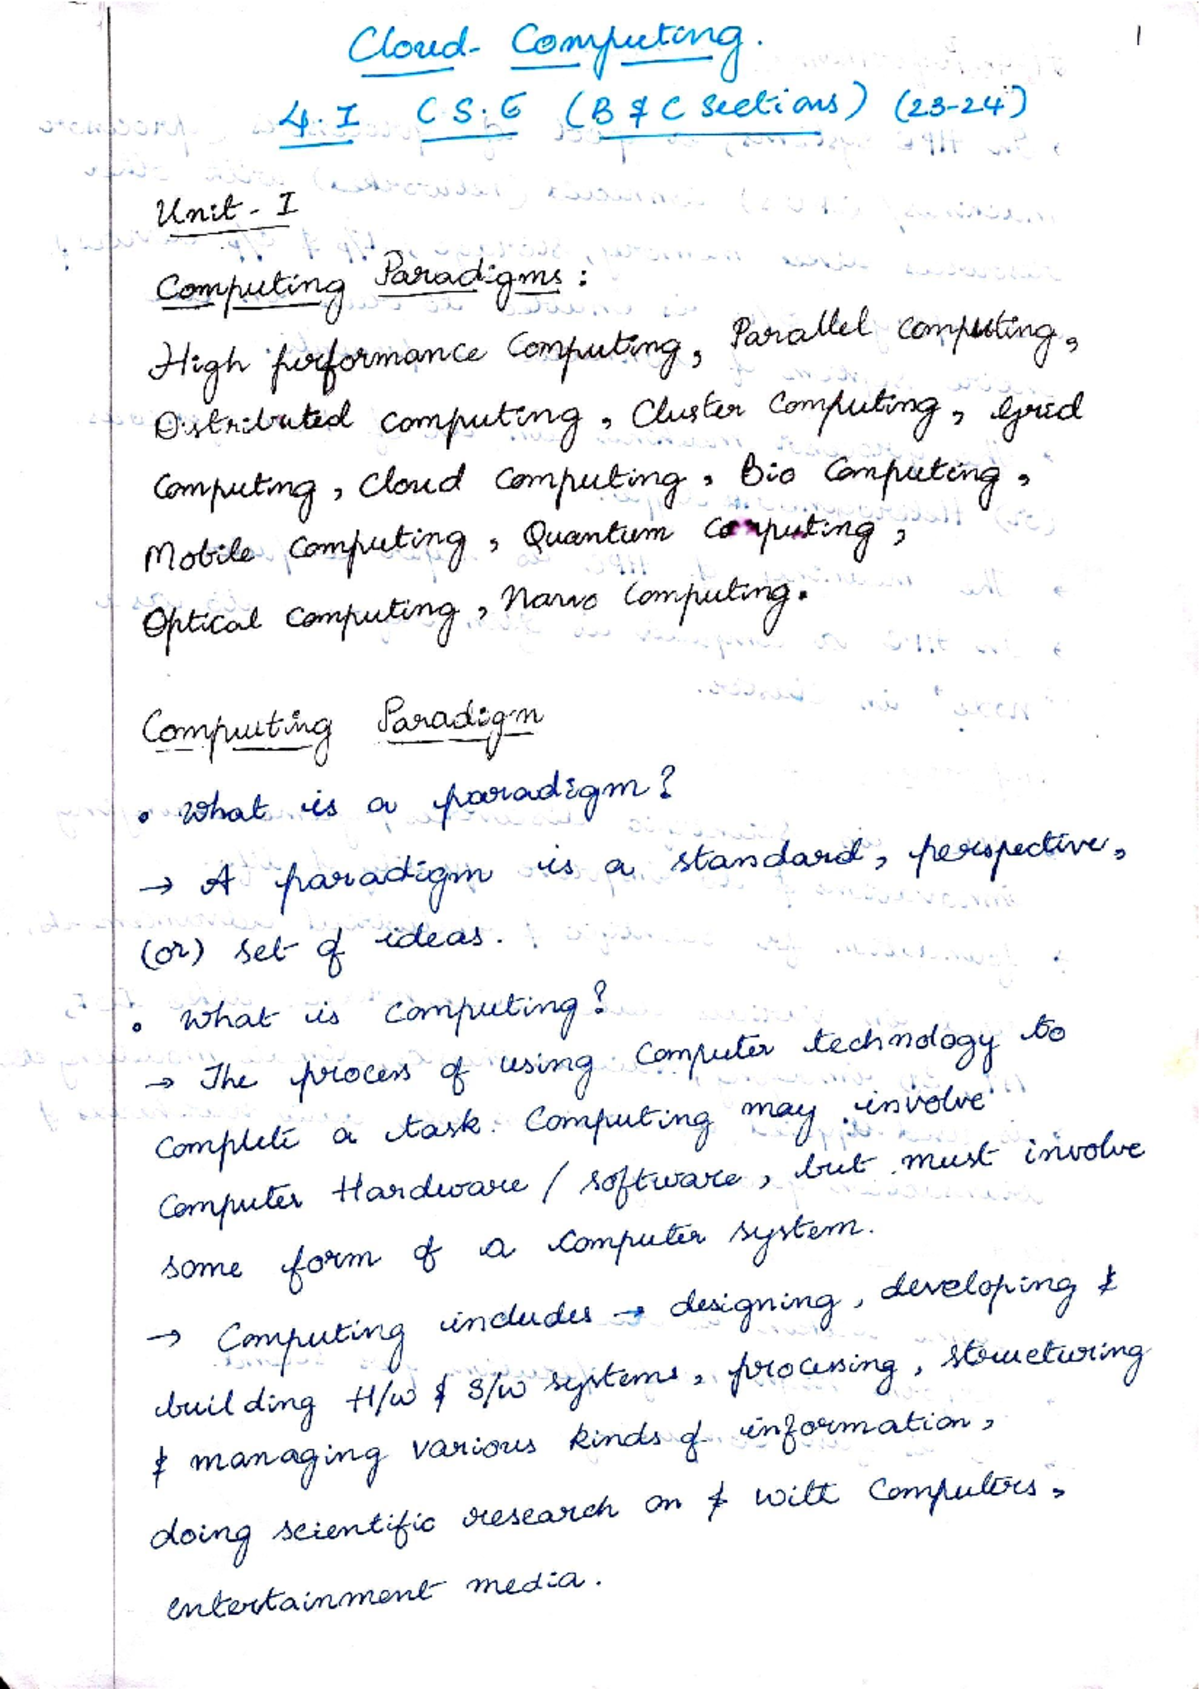 Cloud Computing.
1
4.I C.S.E (B & C Sections) (23-24)
Unit - I
Computing Paradigms :
High performance Computing, Parallel computing,
Distributed computing, Cluster Computing, Grid
Computing, Cloud computing, Bio Computing,
Mobile Computing, Quantum Computing,
Optical Computing, Nano Computing.
Computing Paradigm
• What is a paradigm?
→ A paradigm is a standard, perspective,
(or) set of ideas.
• What is Computing?
→ The process of using Computer technology to
Complete a task. Computing may involve
Computer Hardware / software, but must involve
some form of a Computer system.
→ Computing includes → designing, developing &
building H/w & S/w systems, processing, structuring
& managing various kinds of information,
doing scientific research on & with Computers,
entertainment media.